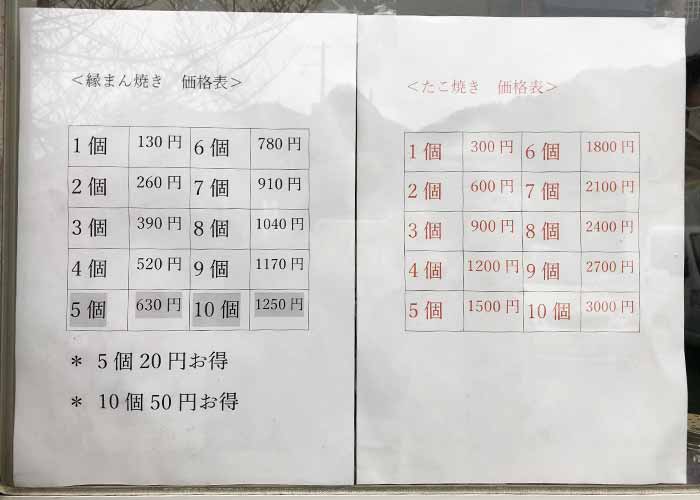 ＜縁まん焼き　価格表＞
1個 130円 6個 780円
2個 260円 7個 910円
3個 390円 8個 1040円
4個 520円 9個 1170円
5個 630円 10個 1250円
＊ 5個20円お得
＊ 10個50円お得
＜たこ焼き　価格表＞
1個 300円 6個 1800円
2個 600円 7個 2100円
3個 900円 8個 2400円
4個 1200円 9個 2700円
5個 1500円 10個 3000円